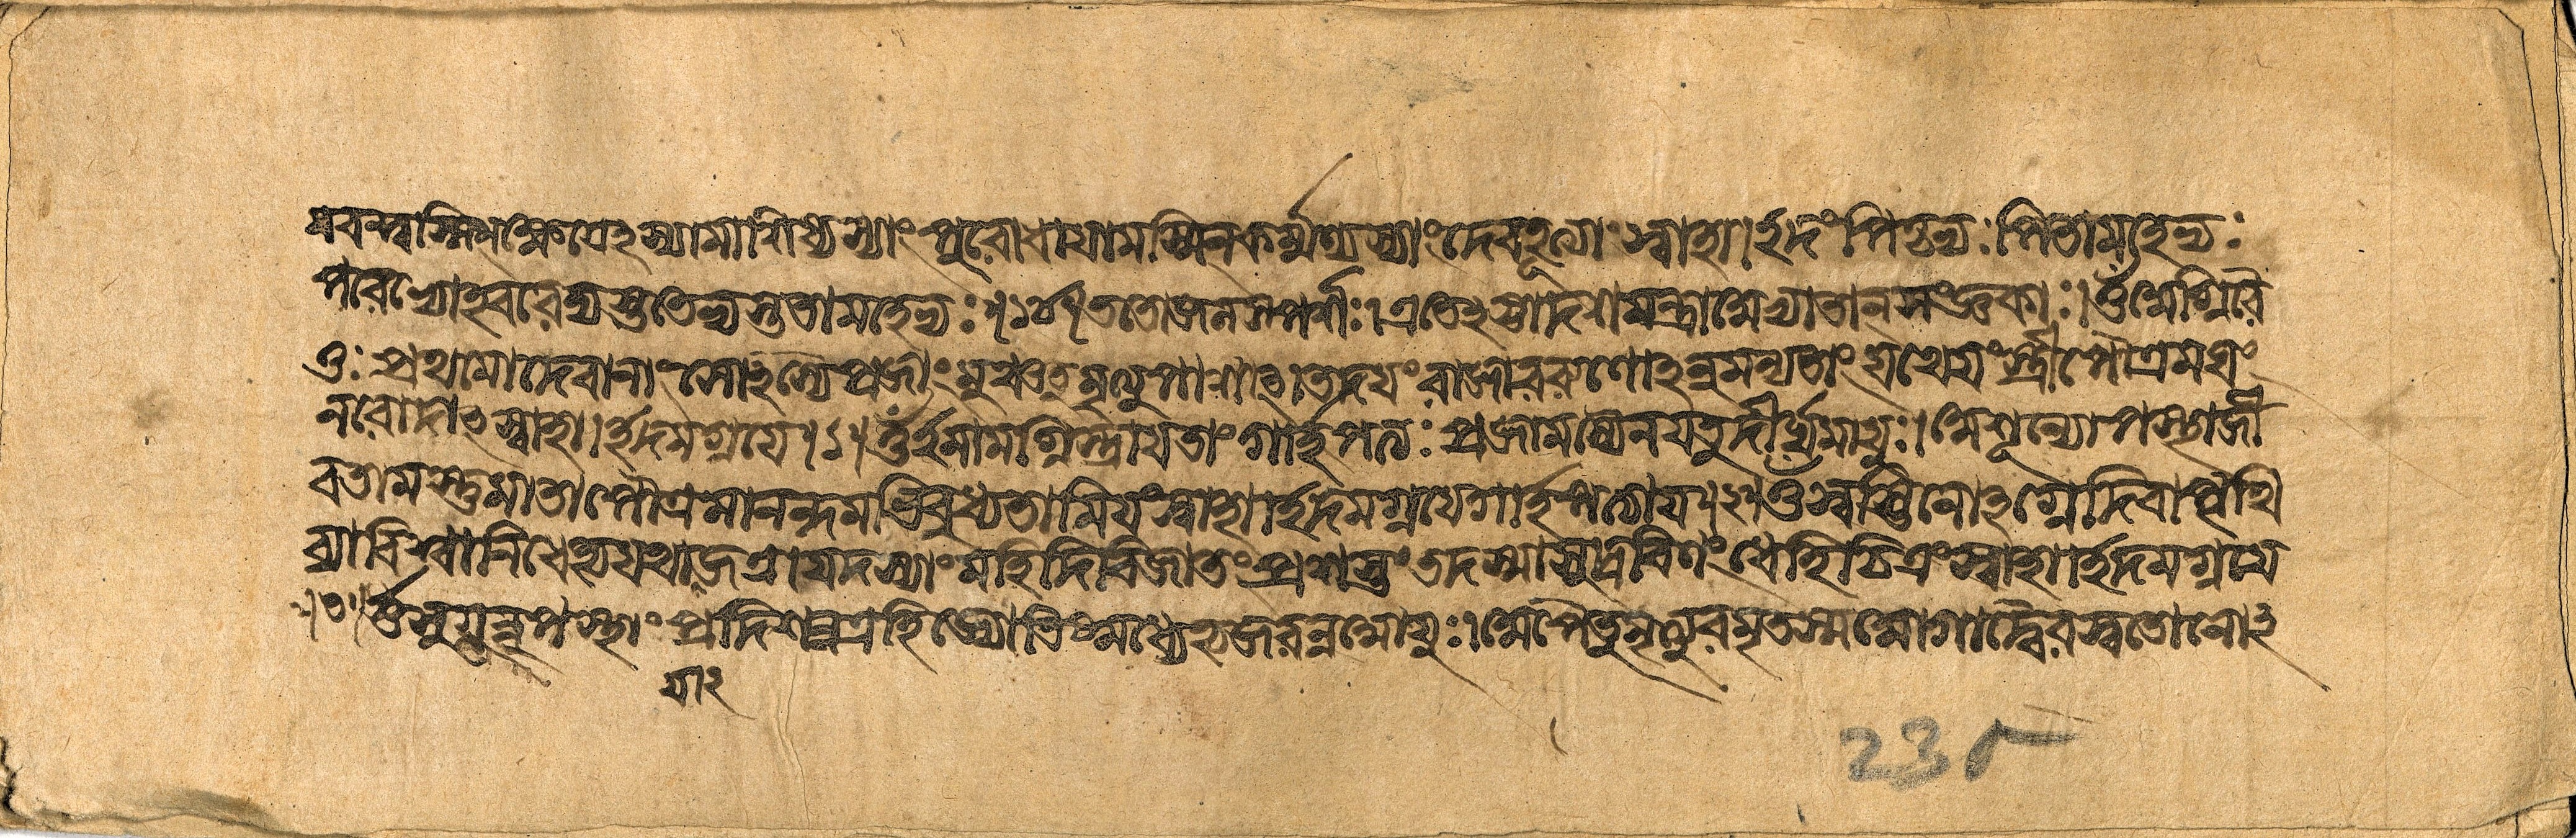 মবত্বস্মিন্ব্রহ্মণ্যেঽস্যামাশিষ্যস্যাং পুরোধায়ামস্মিন্কর্ম্মণ্যস্যাং দেবহূত্যাং স্বাহা। ইদং পিতৃভ্যঃ পিতামহেভ্যঃ
পরেভ্যোঽবরেভ্যস্ততেভ্যস্ততামহেভ্যঃ ।১৮। এতেঽষ্টাদশমন্ত্রাঅভ্যাতানসংজ্ঞকাঃ। ওঁ অগ্নিরৈ
তুঃ প্রথমোদেবানাং সোঽস্যৈপ্রজাং মুঞ্চতু মৃত্যুপাশাৎ। তদয়ং রাজাবরুণোঽনুমন্যতাং যথেয়ং স্ত্রীপৌত্রমঘং
নরোদাৎ স্বাহা। ইদমগ্নয়ে।১। ওঁ ইমামগ্নিস্ত্রায়তাং গার্হপত্যঃ প্রজামস্যৈনয়তুদীর্ঘমায়ুঃ। অশূন্যোপস্থাজী
বতামস্তুমাতাপৌত্রমানন্দমভিবুধ্যতামিয়ং স্বাহা। ইদমগ্নয়েগার্হপত্যায়।২। ওঁ স্বস্তিনোঽগ্নেদিবাপৃথি
ব্যাবিশ্বানিধেহ্যযথাযজত্রাযদস্যাং মহিদিবিজাতং প্রশস্তং তদস্মাসুদ্রবিণং ধেহিচিত্রং স্বাহা। ইদমগ্নয়ে
।৩। ওঁ সুগন্নুপন্থাং প্রদিশন্নএহিজ্যোতিষ্মধ্যেহ্যজরন্নআয়ুঃ। অপৈতুমৃত্যুরমৃতম্মআগাদ্বৈবস্বতোনোঽ